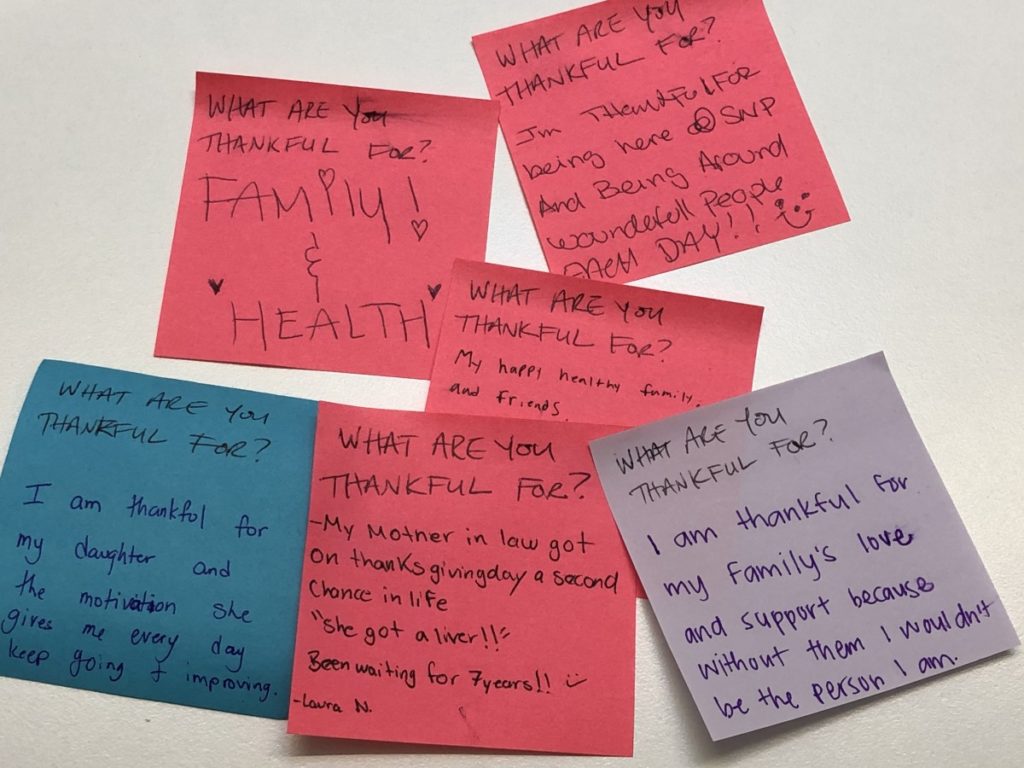 WHAT ARE YOU
THANKFUL FOR?
FAMILY!
&
HEALTH
WHAT ARE YOU
THANKFUL FOR?
I'm THANKFUL FOR
being here @ SNP
And Being Around
wounderfull People
EACH DAY!!
WHAT ARE YOU
THANKFUL FOR?
My happy healthy family,
and friends.
WHAT ARE YOU
THANKFUL FOR?
I am thankful for
my daughter and
the motivation she
gives me every day
keep going & improving.
WHAT ARE YOU
THANKFUL FOR?
-My Mother in law got
on thanksgivingday a second
Chance in life
"She got a liver!!"
Been waiting for 7years!!
-Laura N.
WHAT ARE YOU
THANKFUL FOR?
I am thankful for
my family's love
and support because
without them I wouldn't
be the person I am.